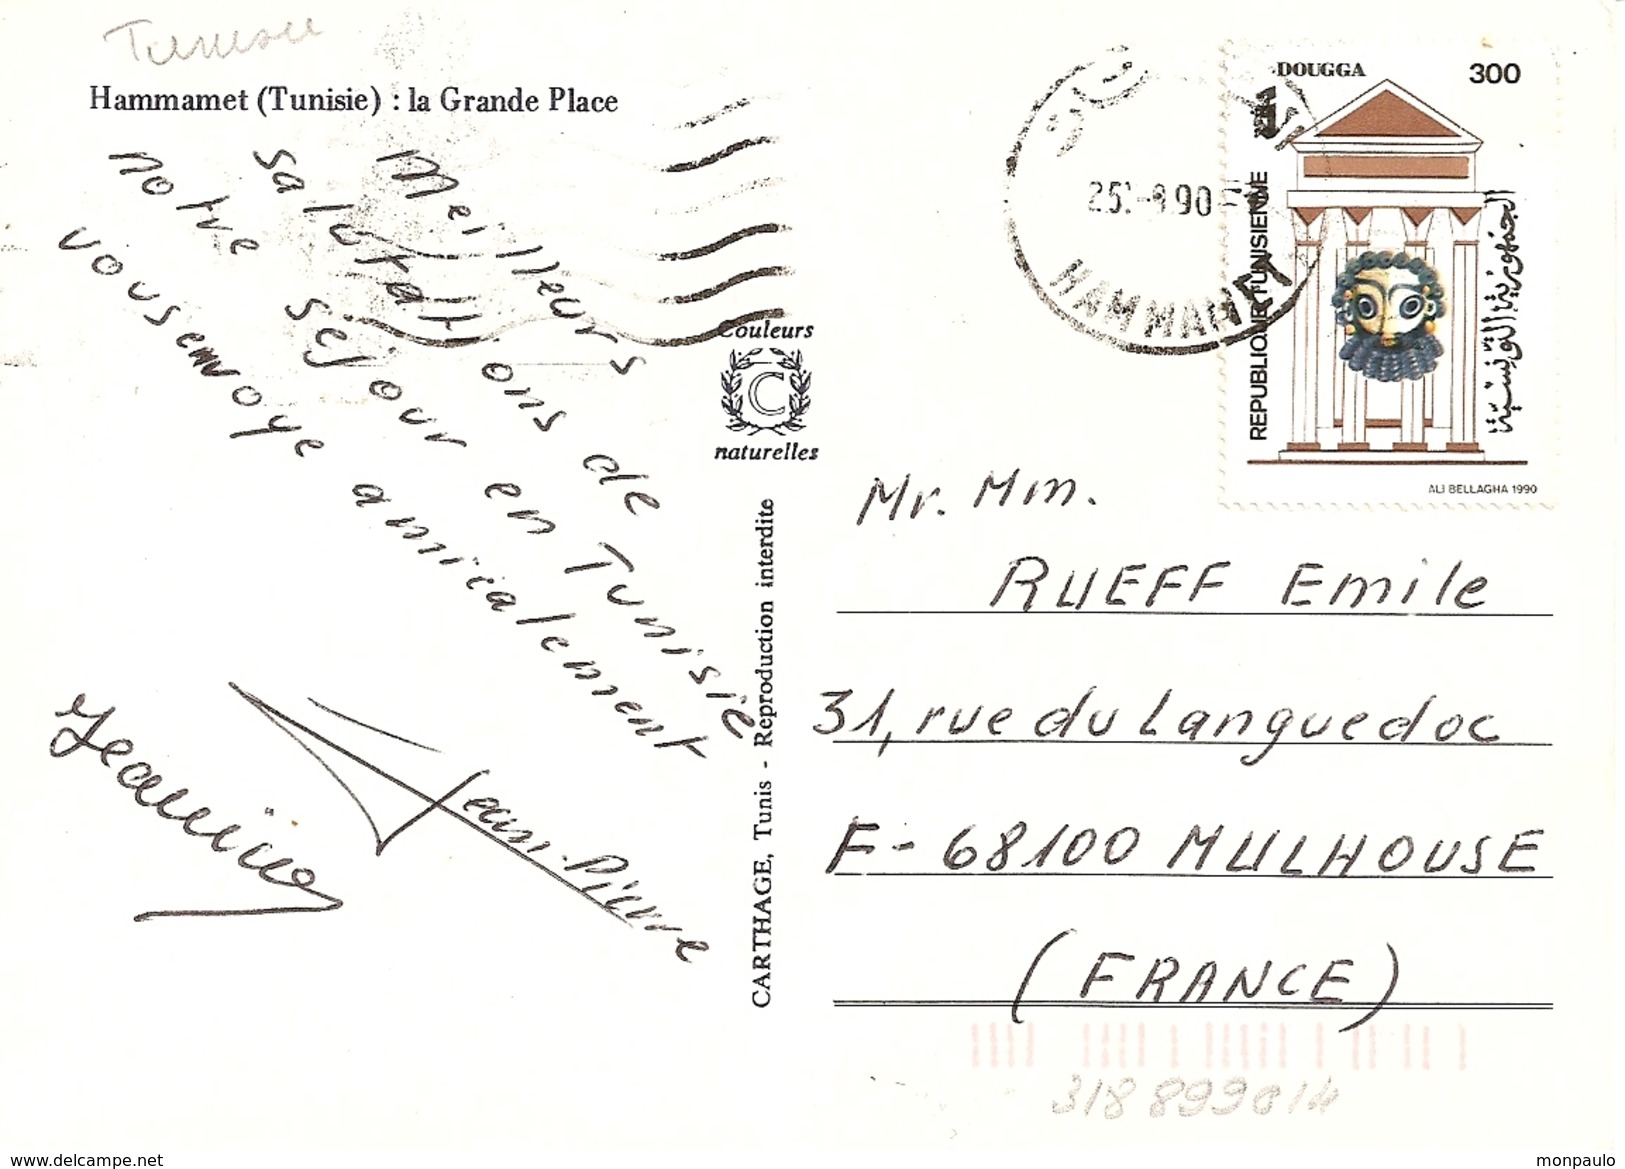 Tunisie
Hammamet (Tunisie) : la Grande Place
Meilleurs
salutations de
notre séjour en Tunisie
vous envoye amicalement
Jeannine
Jean-Pierre
Couleurs
C
naturelles
CARTHAGE, Tunis - Reproduction interdite
HAMMAMET
DOUGGA
300
REPUBLIQUE TUNISIENNE
الجمهورية التونسية
ALI BELLAGHA 1990
Mr. Mm.
RUEFF Emile
31, rue du Languedoc
F-68100 MULHOUSE
(FRANCE)
318899014
www.delcampe.net
monpaulo